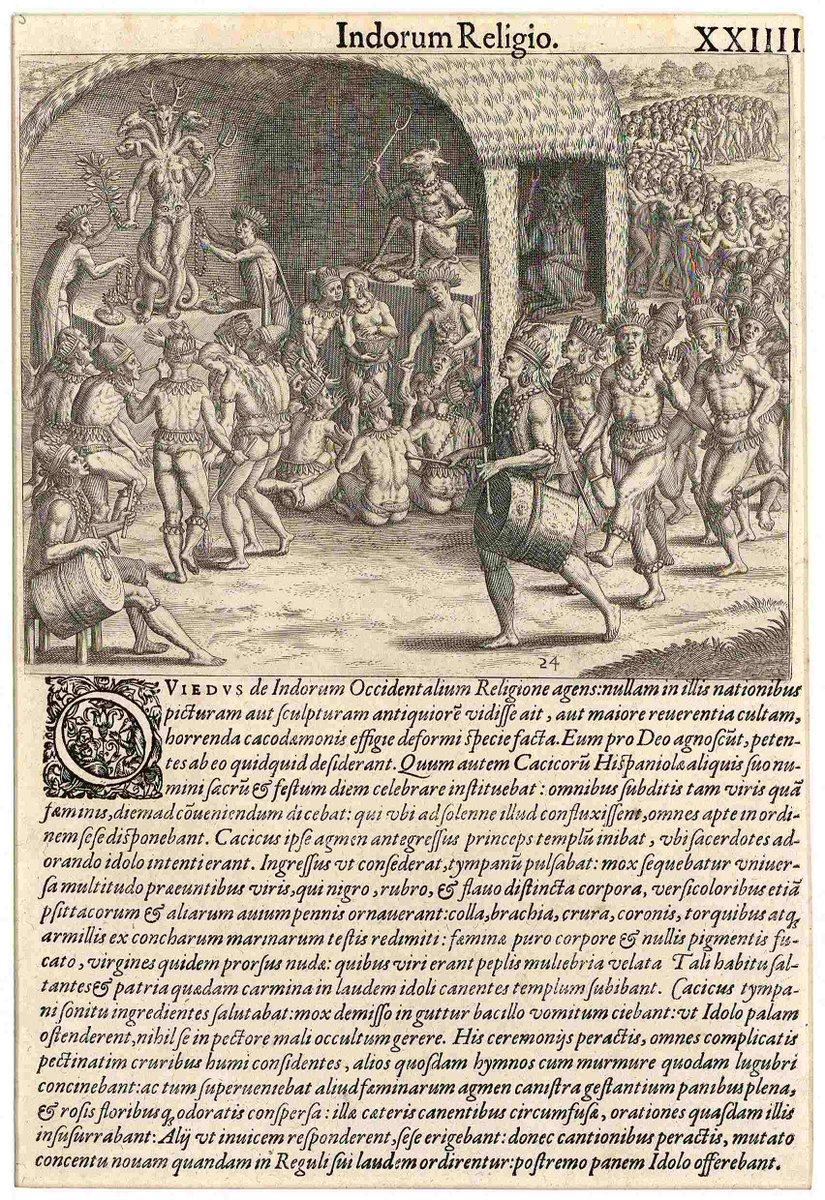 Indorum Religio. XXIIII.
24
OVIEDVS de Indorum Occidentalium Religione agens: nullam in illis nationibus
picturam aut sculpturam antiquiorē vidisse ait, aut maiore reuerentia cultam,
horrenda cacodæmonis effigie deformi specie facta. Eum pro Deo agnoscūt, peten-
tes ab eo quidquid desiderant. Quum autem Cacicorū Hispaniolæ aliquis suo nu-
mini sacrū & festum diem celebrare instituebat: omnibus subditis tam viris quā
fæminis, diem ad cōueniendum dicebat: qui vbi ad solenne illud confluxissent, omnes apte in ordi-
nem sese disponebant. Cacicus ipse agmen antegressus princeps templū inibat, vbi sacerdotes ad-
orando idolo intenti erant. Ingressus vt consederat, tympanū pulsabat: mox sequebatur vniuer-
sa multitudo præeuntibus viris, qui nigro, rubro, & flauo distincta corpora, versicoloribus etiā
psittacorum & aliarum auium pennis ornauerant: colla, brachia, crura, coronis, torquibus atq;
armillis ex concharum marinarum testis redimiti: fæminæ puro corpore & nullis pigmentis fu-
cato, virgines quidem prorsus nudæ: quibus viri erant peplis muliebria velata Tali habitu sal-
tantes & patria quædam carmina in laudem idoli canentes templum subibant. Cacicus tympa-
ni sonitu ingredientes salutabat: mox demisso in guttur bacillo vomitum ciebant: vt Idolo palam
ostenderent, nihil se in pectore mali occultum gerere. His ceremonijs peractis, omnes complicatis
pectinatim cruribus humi considentes, alios quosdam hymnos cum murmure quodam lugubri
concinebant: ac tum superueniebat aliud fæminarum agmen canistra gestantium panibus plena,
& rosis floribusq; odoratis conspersa: illæ cæteris canentibus circumfusæ, orationes quasdam illis
insusurrabant: Alij vt inuicem responderent, sese erigebant: donec cantionibus peractis, mutato
concentu nouam quandam in Reguli sui laudem ordirentur: postremo panem Idolo offerebant.